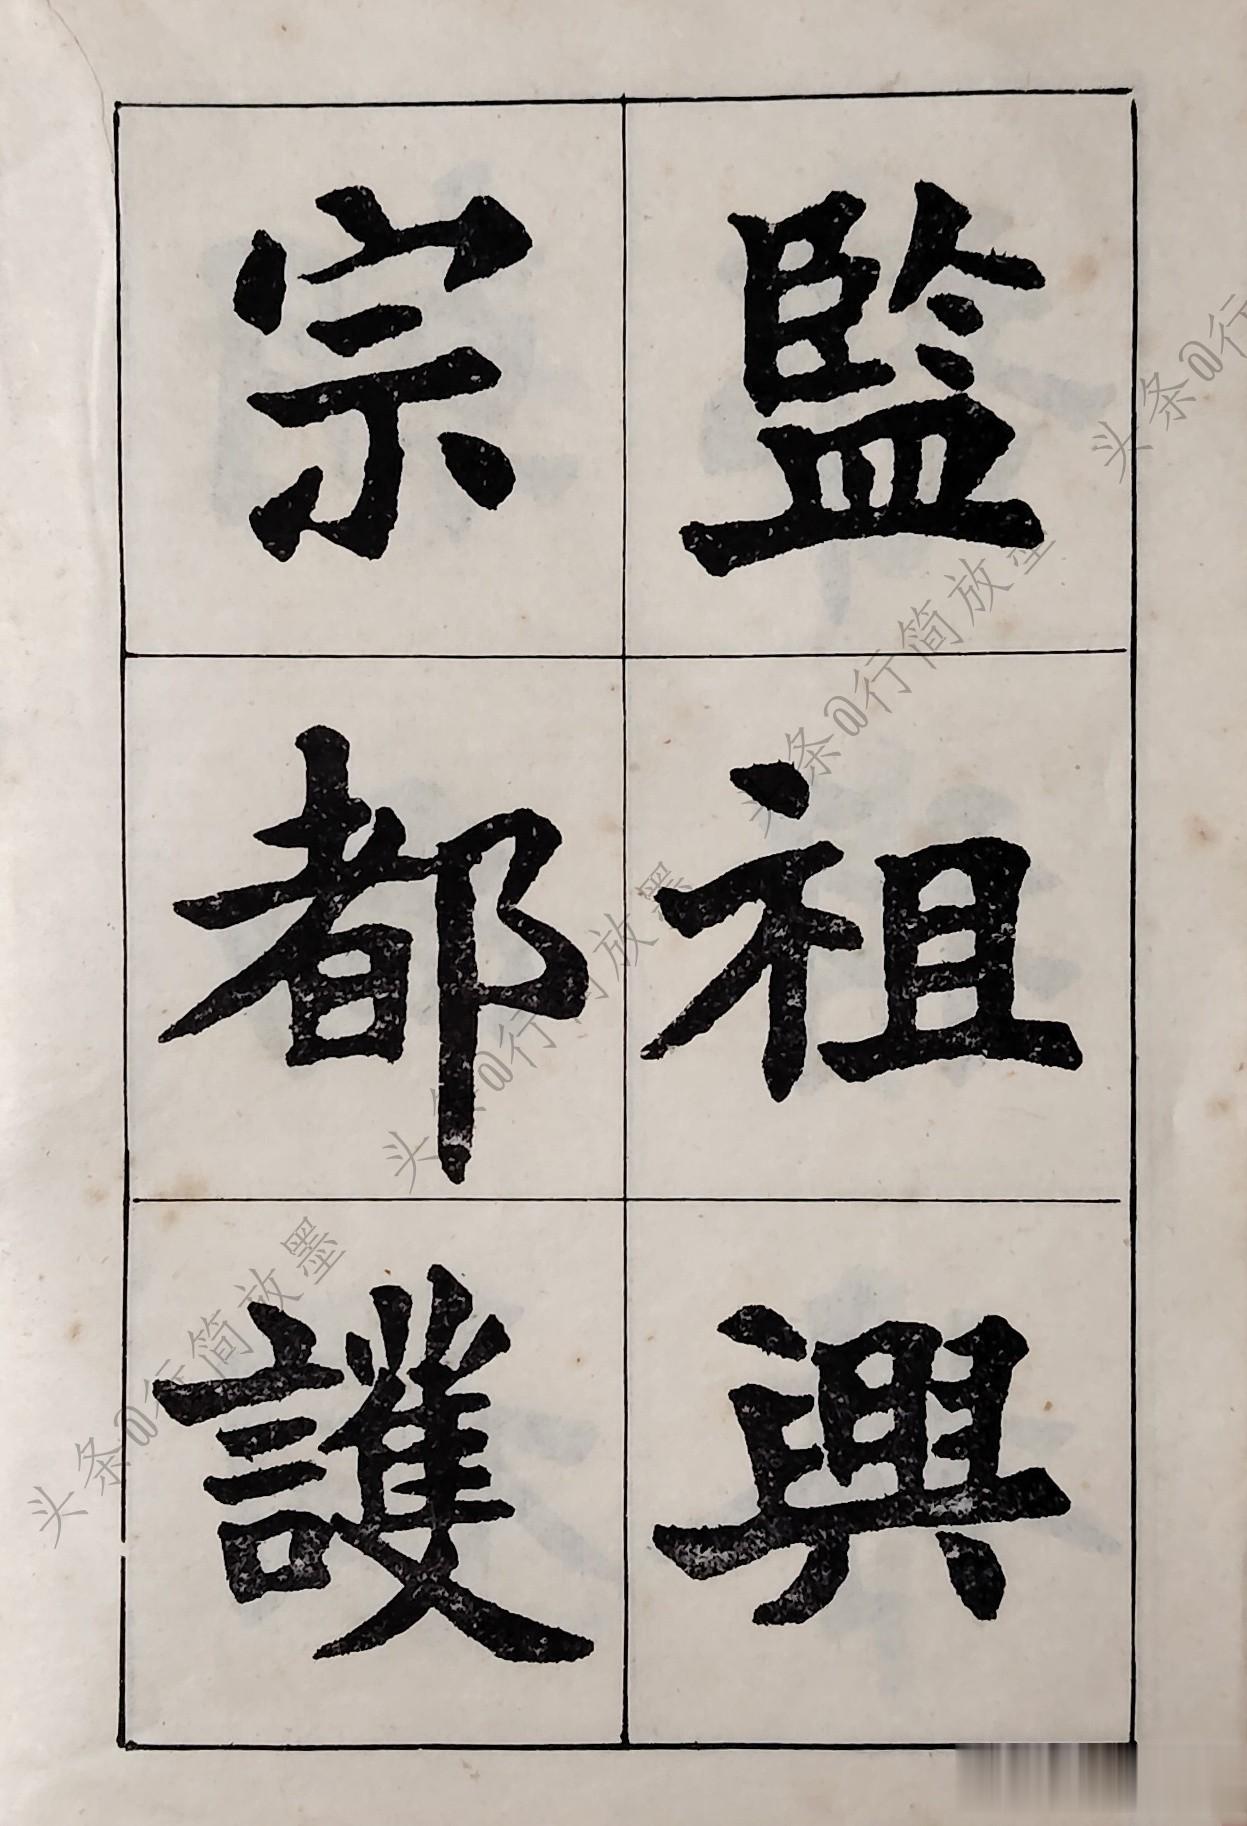 監祖興
宗都護
头条@行简放墨
头条@行简放墨
头条@行简放墨
头条@行